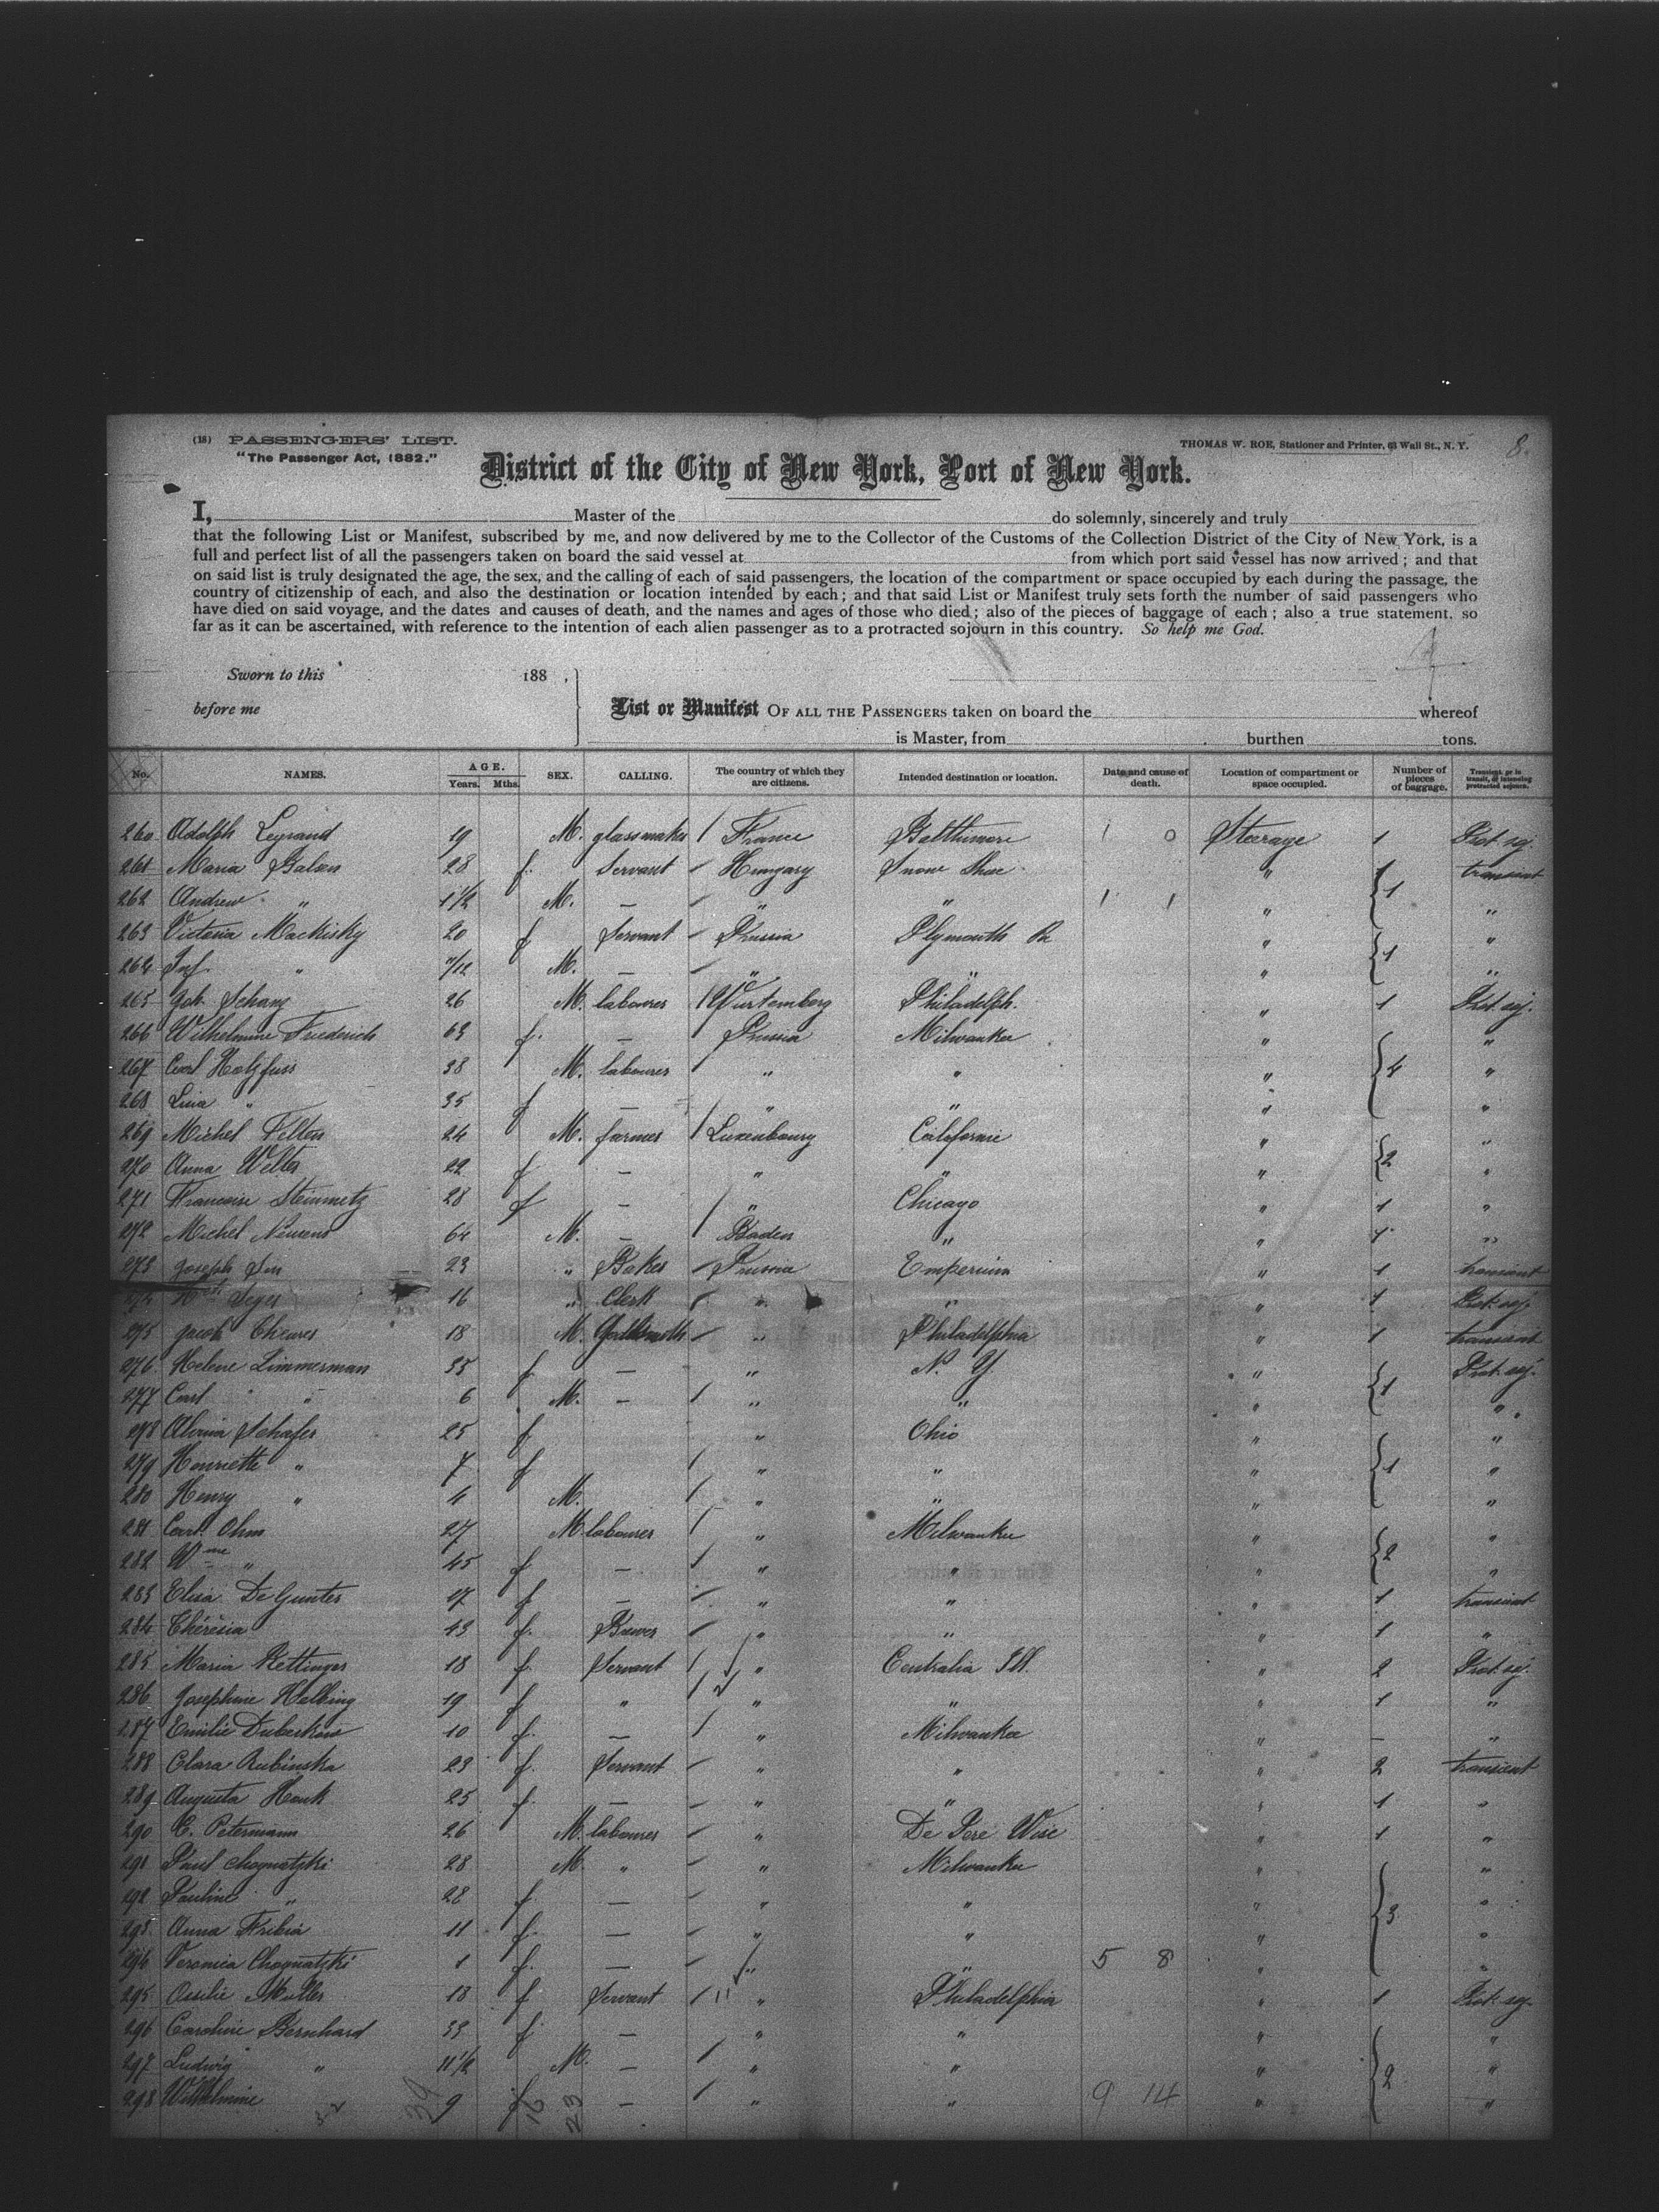 (18) PASSENGERS' LIST.
"The Passenger Act, 1882."
THOMAS W. ROE, Stationer and Printer, 63 Wall St., N. Y.
8.
District of the City of New York, Port of New York.
I, Master of the do solemnly, sincerely and truly
that the following List or Manifest, subscribed by me, and now delivered by me to the Collector of the Customs of the Collection District of the City of New York, is a
full and perfect list of all the passengers taken on board the said vessel at from which port said vessel has now arrived ; and that
on said list is truly designated the age, the sex, and the calling of each of said passengers, the location of the compartment or space occupied by each during the passage, the
country of citizenship of each, and also the destination or location intended by each ; and that said List or Manifest truly sets forth the number of said passengers who
have died on said voyage, and the dates and causes of death, and the names and ages of those who died ; also of the pieces of baggage of each ; also a true statement, so
far as it can be ascertained, with reference to the intention of each alien passenger as to a protracted sojourn in this country. So help me God.
Sworn to this 188 ,
before me
List or Manifest OF ALL THE PASSENGERS taken on board the whereof
is Master, from burthen tons.
No. NAMES. AGE. Years. Mths. SEX. CALLING. The country of which they are citizens. Intended destination or location. Date and cause of death. Location of compartment or space occupied. Number of pieces of baggage. Transient or in transit, or intending protracted sojourn.
260 Adolph Legrand 19 M. glassmaker / France Balthimore 1 0 Steerage 1 Prot. sej.
261 Maria Balon 28 f. Servant Hungary Snow Shoe " transient
262 Andrew " 1 1/2 M. — " " 1 1 " 1 "
263 Victoria Mackisky 20 f Servant Prussia Plymouth Pa " "
264 Inf. " 11/12 M. — " " " 1 "
265 Joh. Schanz 26 M. labourer / Würtemberg Philadelph. " 1 Prot. sej.
266 Wilhelmine Friederich 63 f. — Prussia Milwaukee " "
267 Carl Holzfuss 38 M. labourer / " " " 4 "
268 Lina " 35 f — " " " "
269 Michel Felten 24 M. farmer / Luxembourg Californie " "
270 Anna Welter 22 f — " " " 2 "
271 Francoise Steinmetz 28 f — " Chicago " 1 "
272 Michel 64 M. — / Baden " " 1 "
273 Joseph 23 " Baker Prussia Emperium " 1 transient
274 Seger 16 " Clerk " " " 1 Prot. sej.
275 Jacob 18 M. Goldsmith " Philadelphia " 1 transient
276 Helene Zimmerman 35 f — " N. Y. " Prot. sej.
277 Carl " 6 M. — / " " " 1 "
278 Alvina Schafer 25 f " Ohio " "
279 Henriette " 7 f / " " " 1 "
280 Henry " 4 M. / " " " "
281 Carl Ohm 27 M labourer / " Milwaukee " "
282 Wme " 45 f — / " " " 2 "
283 Elisa De Gunter 17 f — " " " 1 transient
284 Thérèsia 43 f. " " " 1 "
285 Maria Rettinger 18 f. Servant / " Centralia Ill. " 2 Prot. sej.
286 Josephine Helbing 19 f " / " " " 1 "
287 Emilie 10 f. — / " Milwaukee " — "
288 Clara Rubinska 23 f. Servant " " " 2 transient
289 Augusta Hank 25 f. — " " " 1 "
290 C. Petermann 26 M. labourer " De Pere Wisc " 1 "
291 Paul Chognatzki 28 M. " " Milwaukee " "
292 Pauline " 28 f — " " " "
293 Anna Fribia 11 f. — " " " 3 "
294 Veronica Chognatzki 1 f. — " " 5 8 " "
295 Ossilie Muller 18 f Servant / 11 " Philadelphia " 1 Prot. sej.
296 Caroline Bernhard 33 f — " " " "
297 Ludwig " 11 1/2 M. — / " " " 2 "
298 Wilhelmine 9 f — / " " 9 14 " "
39 16 23